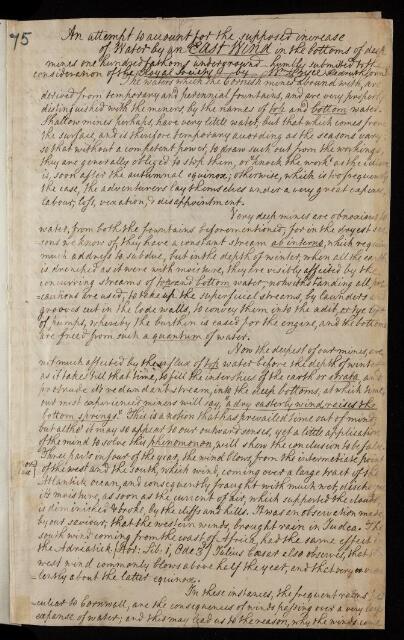 75
An attempt to account for the supposed increase
of Water by an East Wind in the bottoms of deep
mines one hundred fathoms underground humbly submitted to the
consideration of the Royal Society by Mr Pryce Redruth Cornwall
The waters which the Cornish mines abound with, are
derived from temporary and perennial fountains, and are very properly
distinguished with the miners, by the names of top and bottom water.
Shallow mines perhaps, have very little water, but that which comes from
the surface, and is therefore temporary according as the seasons vary,
so that without a competent power, to draw such out from the workings,
they are generally obliged to stop them, or "knock the work" as the
is, soon after the autumnal equinox; otherwise, which is too frequently
the case, the adventurers lay themselves under a very great expence,
labour, loss, vexation, & disappointment.
Very deep mines are obnoxious to
water, from both the fountains beforementioned, for in the dryest sea-
sons we know of they have a constant stream ab interno, which requires
much address to subdue, but in the depth of winter when all the earth
is drenched as it were with moisture, they are visibly affected by the
concurring streams of top and bottom water, notwithstanding all pre-
=cautions are used, to take up the superficial streams, by launders and
grooves cut in the lode walls, to convey them into the adit, or
of pumps, whereby the burthen is eased for the engine, and the bottoms
are freed from such a quantum of water.
Now the deepest of our mines are
not much affected by the influx of top water before the depth of winter
as it takes till that time, to fill the interstices of the earth or strata, and
protrude its redundant stream, into the deep bottoms, at which time,
our most experienced miners will say, "a dry easterly wind, raises the
bottom springs." This is a notion that has prevailed time out of mind;
but altho' it may so appear to our outward senses, yet a little application
of the mind to solve this phenomonon, will shew the conclusion to be false.
Three parts in four of the year, the wind blows, from the intermediate points
of the west and the south, which wind, coming over a large tract of the
Atlantick ocean, and consequently fraught with much wet, discharges
its moisture, as soon as the current of air, which supported the clouds
is diminished & broke by the cliffs and hills. It was an observation made
by our saviour, that the western winds, brought rain in Judea. The
south wind coming from the coast of Africk, had the same effect in
the Adriatick (Hor: Lib: 1, Ode 3) Julius Cæsar also observes, that the
west wind commonly blows above half the year, and that very
about the latter equinox.
In these instances, the frequent rains
culiar to Cornwall, are the consequences of winds passing over a very large
expanse of water; and this may lead us to the reason, why the winds